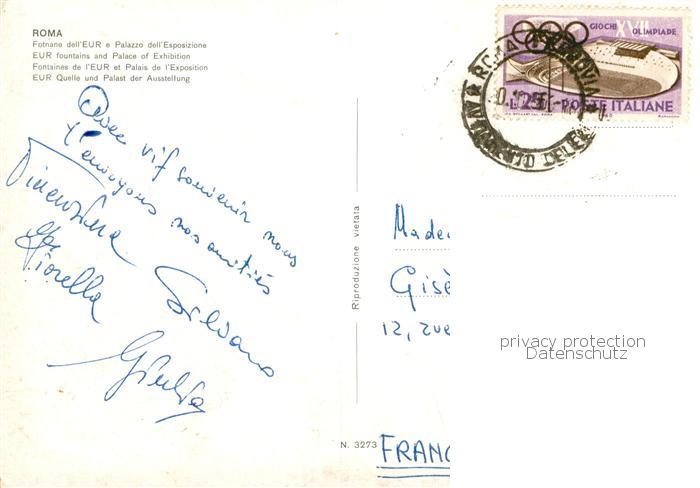 ROMA
Fotnane dell'EUR e Palazzo dell'Esposizione
EUR fountains and Palace of Exhibition
Fontaines de l'EUR et Palais de l'Exposition
EUR Quelle und Palast der Ausstellung
Avec vif souvenir nous
t'envoyons nos amitiés
Vincenzina
Silvana
Fiorella
Giulia
Riproduzione vietata
N. 3273
GIOCHI XVII OLIMPIADE
L.25 POSTE ITALIANE
ROMA FERROVIA
Made
Gisè
12, rue
FRANC
privacy protection
Datenschutz